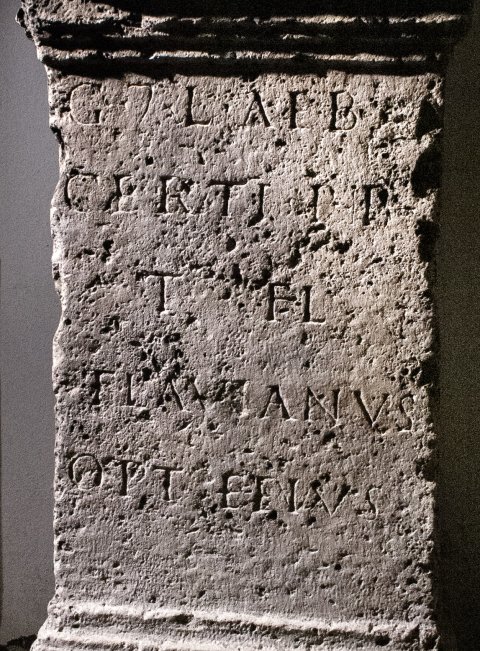 G 7 L AEB
CERTI P P
T FL
FLAVIANVS
OPT